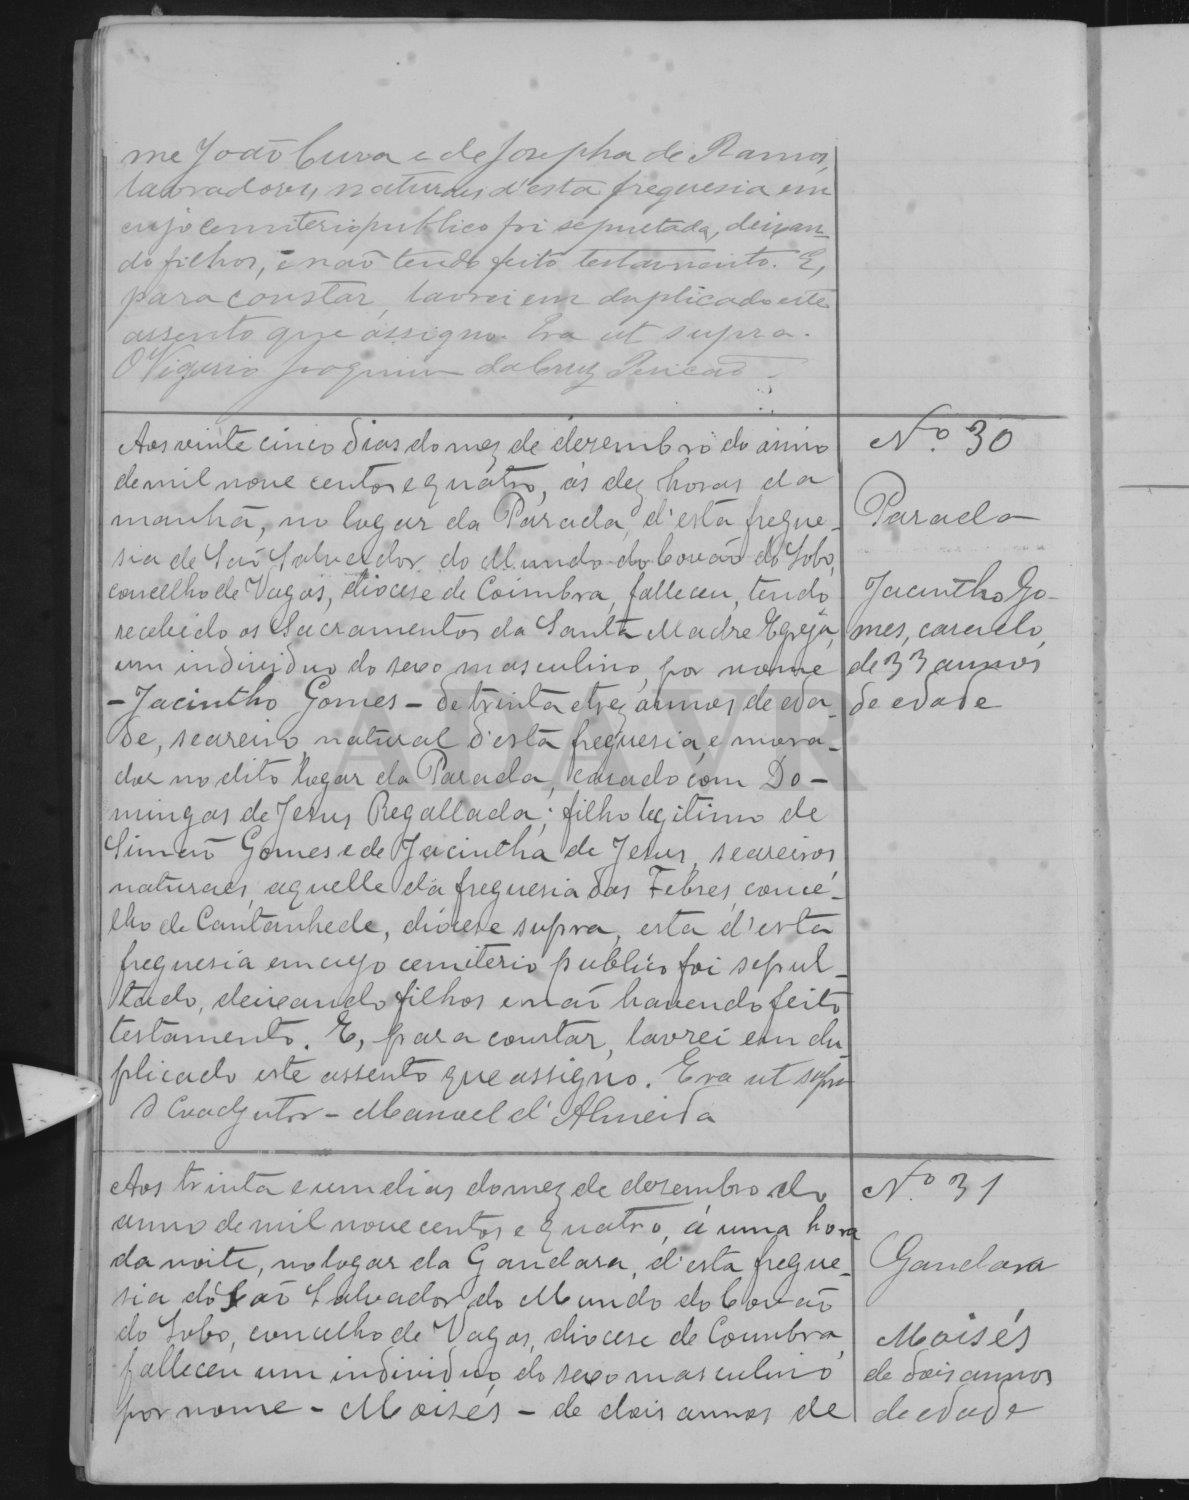 me João Curva e de Josepha de Ramos,
lavradores, naturaes d'esta freguesia em
cujo cemiterio publico foi sepultada, deixan-
do filhos, e não tendo feito testamento. E,
para constar, lavrei em duplicado este
assento que assigno. Era ut supra.
O Vigario Joaquim da Cruz Pericão
Aos vinte cinco dias do mez de dezembro do anno
de mil nove centos e quatro, ás dez horas da
manhã, no logar da Parada, d'esta fregue-
sia de São Salvador do Mundo do Covão do Lobo,
concelho de Vagos, diocese de Coimbra, falleceu, tendo
recebido os Sacramentos da Santa Madre Egreja,
um individuo do sexo masculino, por nome
- Jacintho Gomes - de trinta e trez annos de eda-
de, seareiro, natural d'esta freguesia, e mora-
dor no dito logar da Parada, casado com Do-
mingas de Jesus Regallada; filho legitimo de
Simão Gomes e de Jacintha de Jesus, seareiros
naturaes, aquelle da freguesia das Febres, conce-
lho de Cantanhede, diocese supra, esta d'esta
freguesia em cujo cemiterio publico foi sepul-
tado, deixando filhos e não havendo feito
testamento. E, para constar, lavrei em du-
plicado este assento que assigno. Era ut supra
O Coadjutor - Manuel d'Almeida
Nº 30
Parada
Jacintho Go-
mes, casado,
de 33 annos
de edade
Aos trinta e um dias do mez de dezembro do
anno de mil nove centos e quatro, á uma hora
da noite, no logar da Gandara, d'esta fregue-
sia de São Salvador do Mundo do Covão
do Lobo, concelho de Vagos, diocese de Coimbra,
falleceu um individuo, do sexo masculino
por nome - Moisés - de dois annos de
Nº 31
Gandara
Moisés
de dois annos
de edade
ADAVR